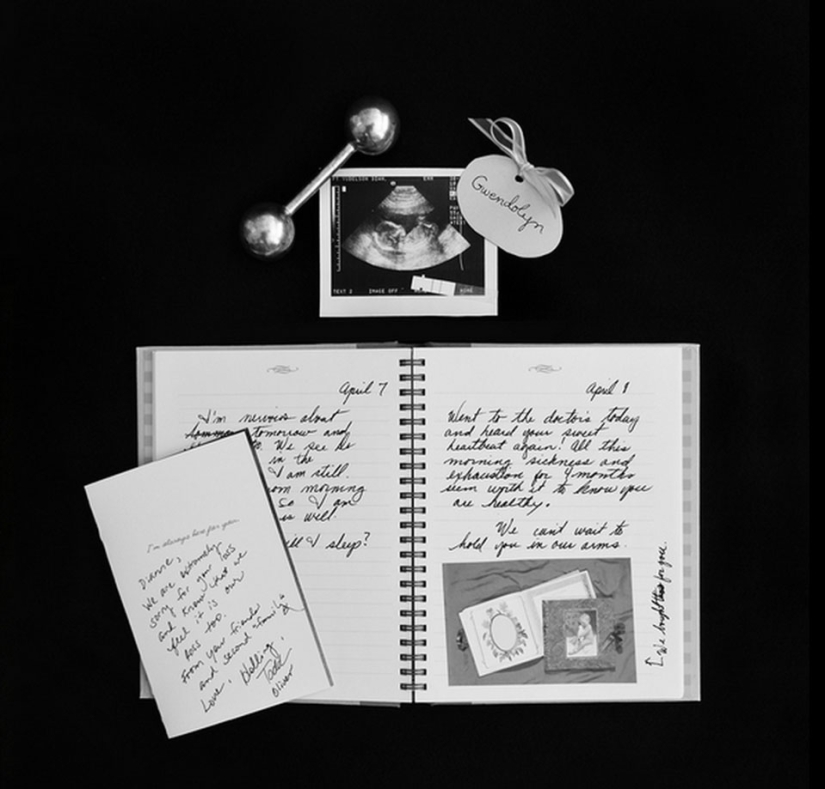 TEXT 2 IMAGE OFF
Gwendolyn
April 7
I'm nervous about
tomorrow and
We see
in the
I am still
morning
So I am
is well.
I sleep?
I'm always here for you.
We are extremely
sorry for your loss
and know that we
feel it is our
loss too.
From your friends
and second family
Love,
Todd
Oliver
April 8
Went to the doctor's today
and heard your sweet
heartbeat again! All this
morning sickness and
exhaustion for 4 months
seem worth it to know you
are healthy.
We can't wait to
hold you in our arms.
We bought this for you.